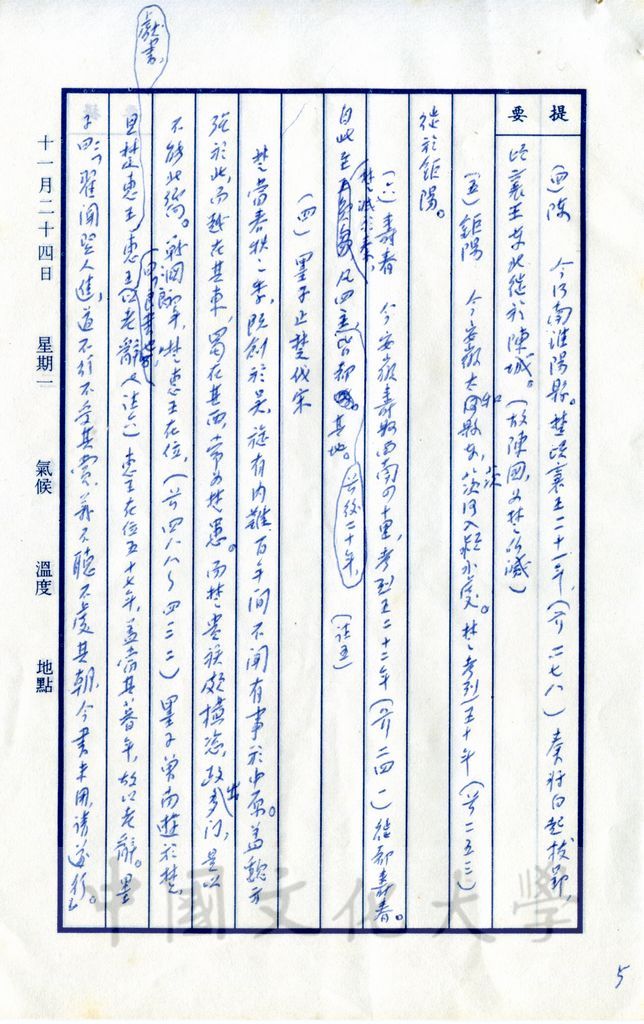 提要
(四)陳 今河南淮陽縣。楚頃襄王二十一年,(前二七八)秦將白起拔郢,
頃襄王東北徙於陳城。(故陳國,為楚所滅)
(五)鉅陽 今安徽太和縣東,茨河入潁水處。楚考烈王十年(前二五三)
徙於鉅陽。
(六)壽春 今安徽壽縣西南四十里,考烈王二十二年(前二四一)徙都壽春。
自此至楚滅於秦,凡四主皆都其地。前後二十年,(註五)
(四)墨子止楚伐宋
楚當春秋之季,既創於吳,旋有內難,百年間不聞有事於中原。蓋魏方
強於此,而越在其東,蜀在其西,常為楚患。而楚貴族頗擅恣,政出多門,是以
不能北向。戰國初年,楚惠王在位,(前四八八~四三二)墨子曾南遊於楚
見楚惠王,獻書,惠王以老辭(註六)惠王在位五十七年,蓋當其暮年,故以老辭。墨
子曰:翟聞賢人進,道不行不受其賞,義不聽不處其朝,今書未用,請遂行。
十一月二十四日 星期一 氣候 溫度 地點
中國文化大學
5